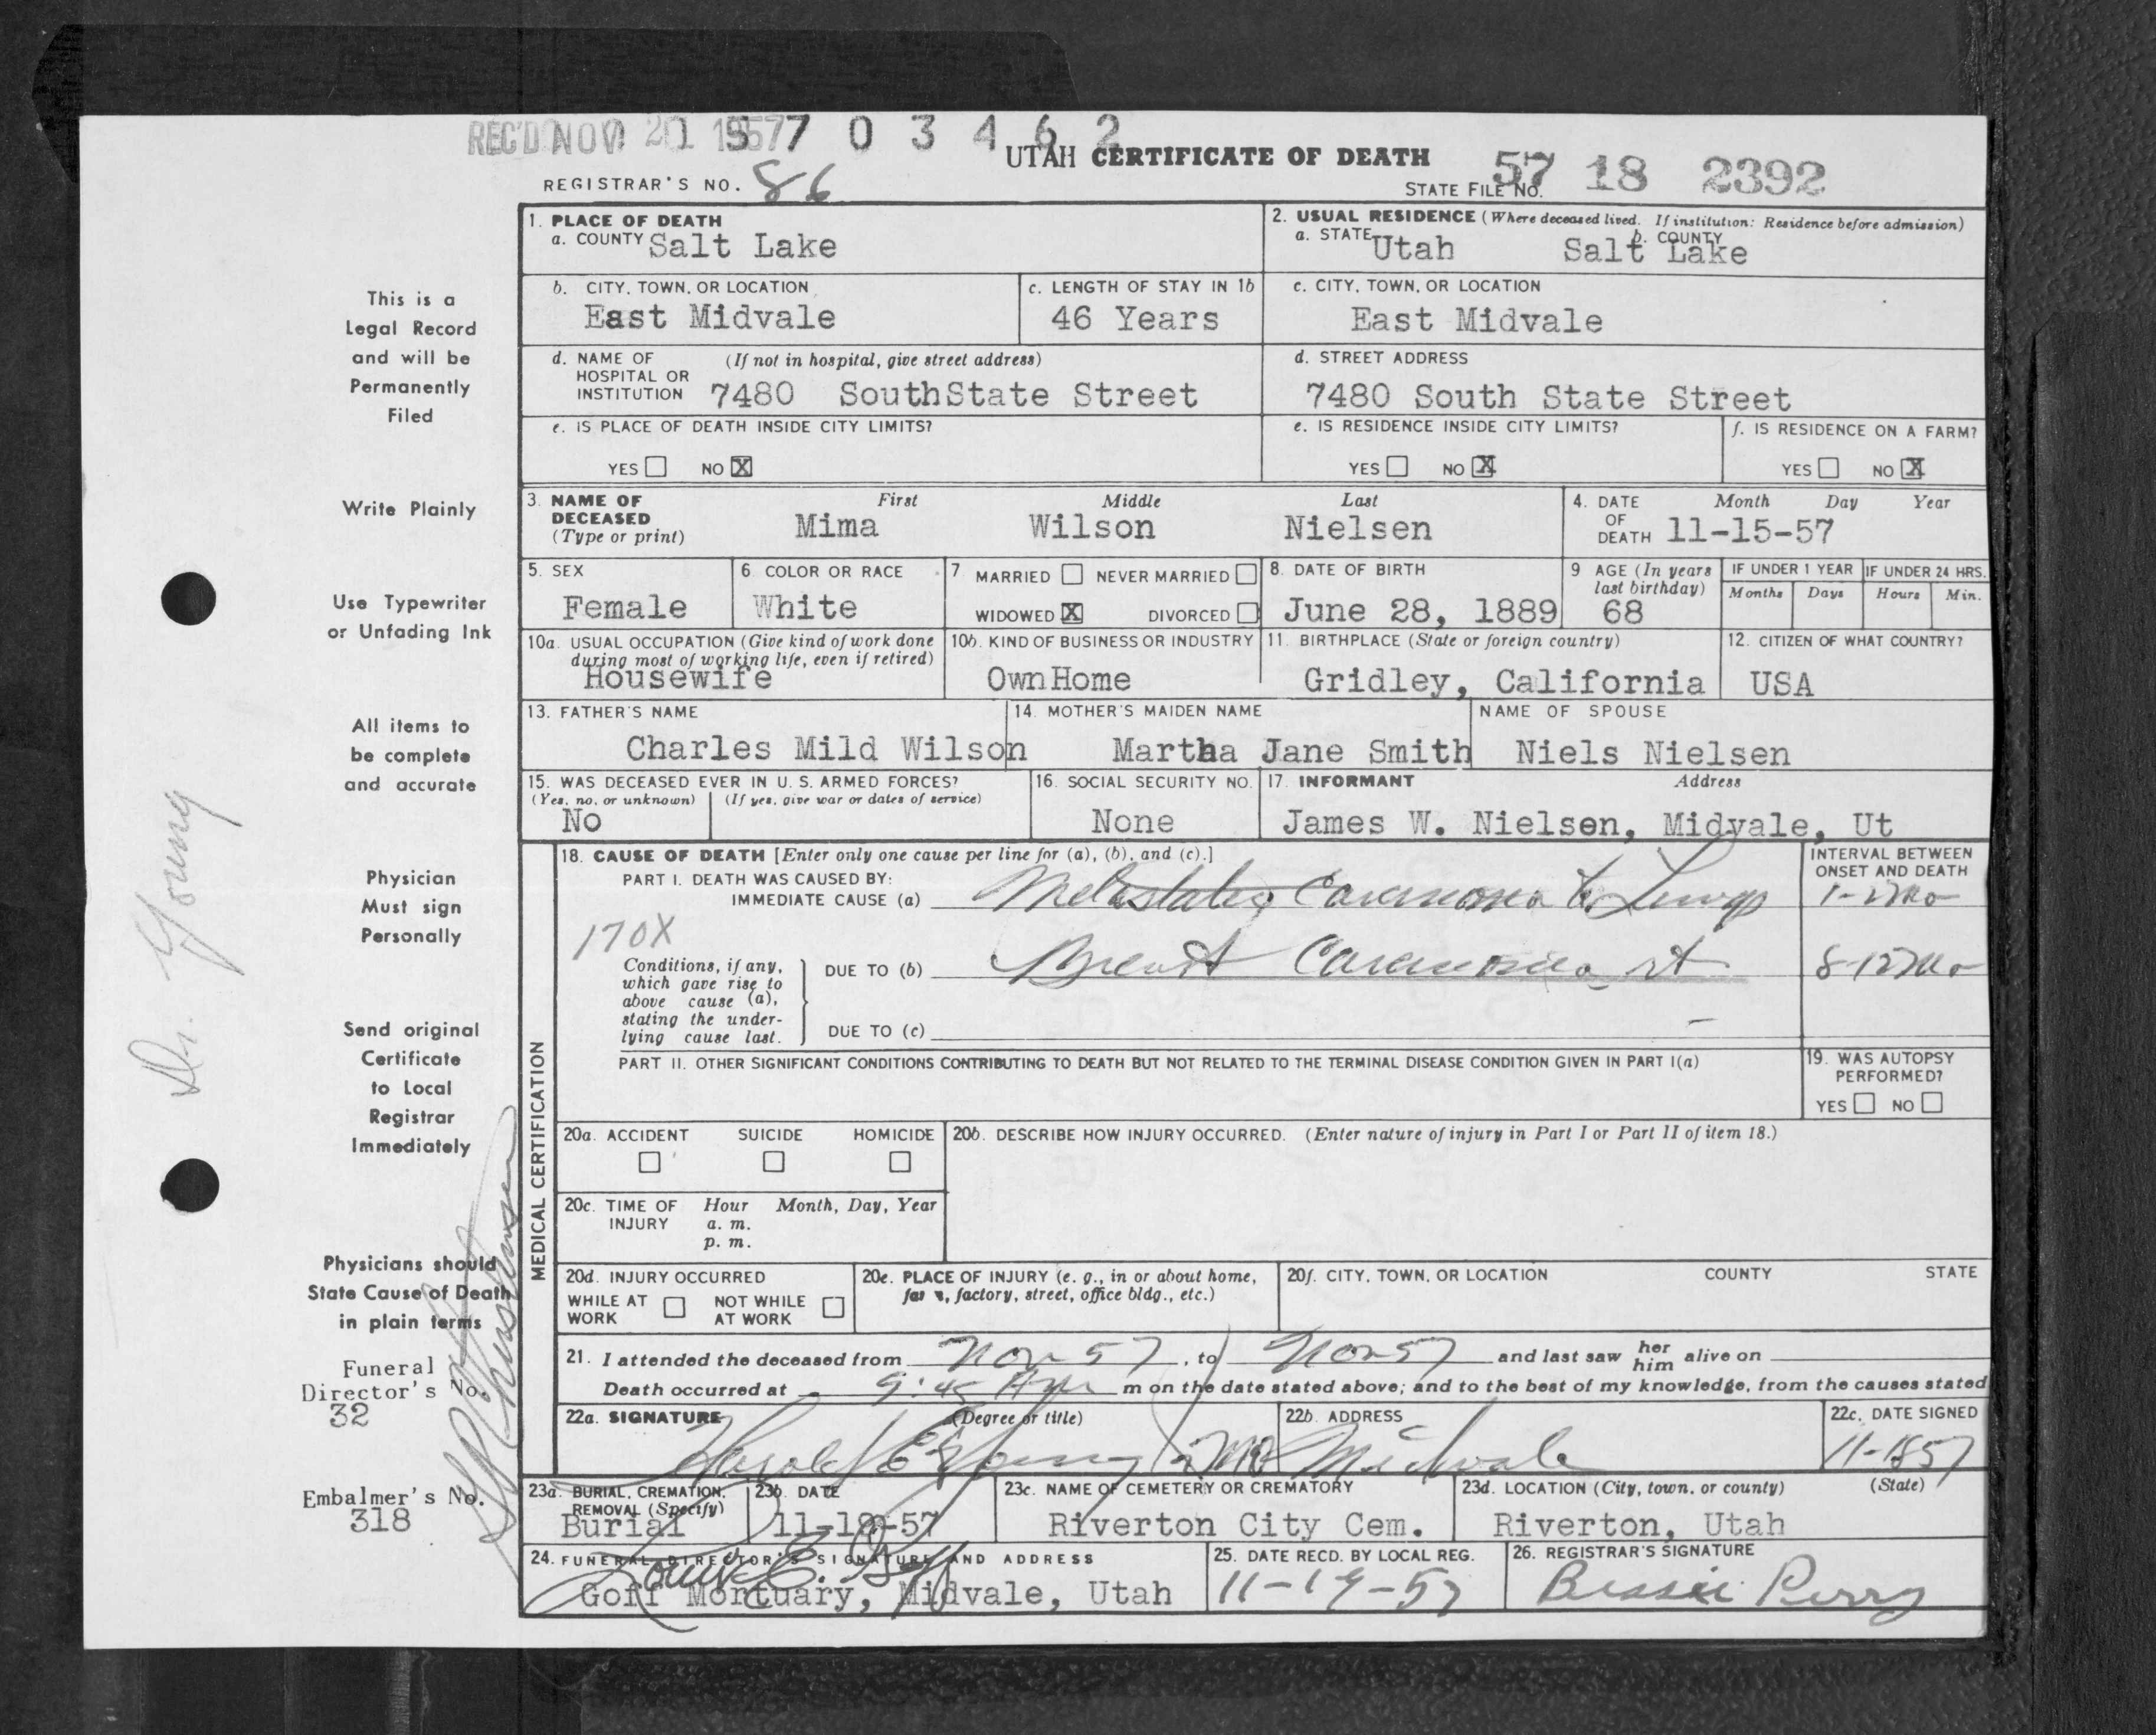 REC'D NOV 20 1957 7 0 3 4 6 2
UTAH CERTIFICATE OF DEATH
REGISTRAR'S NO. 86
STATE FILE NO. 57 18 2392
1. PLACE OF DEATH
a. COUNTY Salt Lake
2. USUAL RESIDENCE (Where deceased lived. If institution: Residence before admission)
a. STATE Utah b. COUNTY Salt Lake
b. CITY, TOWN, OR LOCATION East Midvale
c. LENGTH OF STAY IN 1b 46 Years
c. CITY, TOWN, OR LOCATION East Midvale
d. NAME OF HOSPITAL OR INSTITUTION (If not in hospital, give street address) 7480 SouthState Street
d. STREET ADDRESS 7480 South State Street
e. IS PLACE OF DEATH INSIDE CITY LIMITS?
YES NO X
e. IS RESIDENCE INSIDE CITY LIMITS?
YES NO X
f. IS RESIDENCE ON A FARM?
YES NO X
3. NAME OF DECEASED (Type or print)
First Middle Last
Mima Wilson Nielsen
4. DATE OF DEATH Month Day Year
11-15-57
5. SEX Female
6 COLOR OR RACE White
7 MARRIED NEVER MARRIED
WIDOWED X DIVORCED
8. DATE OF BIRTH June 28, 1889
9 AGE (In years last birthday) 68
IF UNDER 1 YEAR Months Days
IF UNDER 24 HRS. Hours Min.
10a. USUAL OCCUPATION (Give kind of work done during most of working life, even if retired) Housewife
10b. KIND OF BUSINESS OR INDUSTRY OwnHome
11. BIRTHPLACE (State or foreign country) Gridley, California
12. CITIZEN OF WHAT COUNTRY? USA
13. FATHER'S NAME Charles Mild Wilson
14. MOTHER'S MAIDEN NAME Martha Jane Smith
NAME OF SPOUSE Niels Nielsen
15. WAS DECEASED EVER IN U. S. ARMED FORCES?
(Yes, no, or unknown) (If yes, give war or dates of service)
No
16. SOCIAL SECURITY NO. None
17. INFORMANT Address
James W. Nielsen, Midvale, Ut
MEDICAL CERTIFICATION
18. CAUSE OF DEATH [Enter only one cause per line for (a), (b), and (c).]
INTERVAL BETWEEN ONSET AND DEATH
PART I. DEATH WAS CAUSED BY:
IMMEDIATE CAUSE (a) Carcinoma to Lungs 1-2 mo
170X
Conditions, if any, which gave rise to above cause (a), stating the underlying cause last.
DUE TO (b) Breast Carcinoma rt 8-12 mo
DUE TO (c) -
PART II. OTHER SIGNIFICANT CONDITIONS CONTRIBUTING TO DEATH BUT NOT RELATED TO THE TERMINAL DISEASE CONDITION GIVEN IN PART I(a)
19. WAS AUTOPSY PERFORMED?
YES NO
20a. ACCIDENT SUICIDE HOMICIDE
20b. DESCRIBE HOW INJURY OCCURRED. (Enter nature of injury in Part I or Part II of item 18.)
20c. TIME OF INJURY Hour Month, Day, Year
a. m.
p. m.
20d. INJURY OCCURRED
WHILE AT WORK NOT WHILE AT WORK
20e. PLACE OF INJURY (e. g., in or about home, farm, factory, street, office bldg., etc.)
20f. CITY, TOWN, OR LOCATION COUNTY STATE
21. I attended the deceased from Nov 57, to Nov 57 and last saw her him alive on
Death occurred at 9:45 A m on the date stated above; and to the best of my knowledge, from the causes stated
22a. SIGNATURE (Degree or title) Harold E Young MD
22b. ADDRESS Midvale
22c. DATE SIGNED 11-18 57
23a. BURIAL, CREMATION, REMOVAL (Specify) Burial
23b. DATE 11-19-57
23c. NAME OF CEMETERY OR CREMATORY Riverton City Cem.
23d. LOCATION (City, town, or county) (State)
Riverton, Utah
24. FUNERAL DIRECTOR'S SIGNATURE AND ADDRESS
Goff Mortuary, Midvale, Utah
25. DATE RECD. BY LOCAL REG. 11-19-57
26. REGISTRAR'S SIGNATURE Bessie Perry
This is a
Legal Record
and will be
Permanently
Filed
Write Plainly
Use Typewriter
or Unfading Ink
All items to
be complete
and accurate
Physician
Must sign
Personally
Send original
Certificate
to Local
Registrar
Immediately
Physicians should
State Cause of Death
in plain terms
Funeral
Director's No.
32
Embalmer's No.
318
Dr. Young